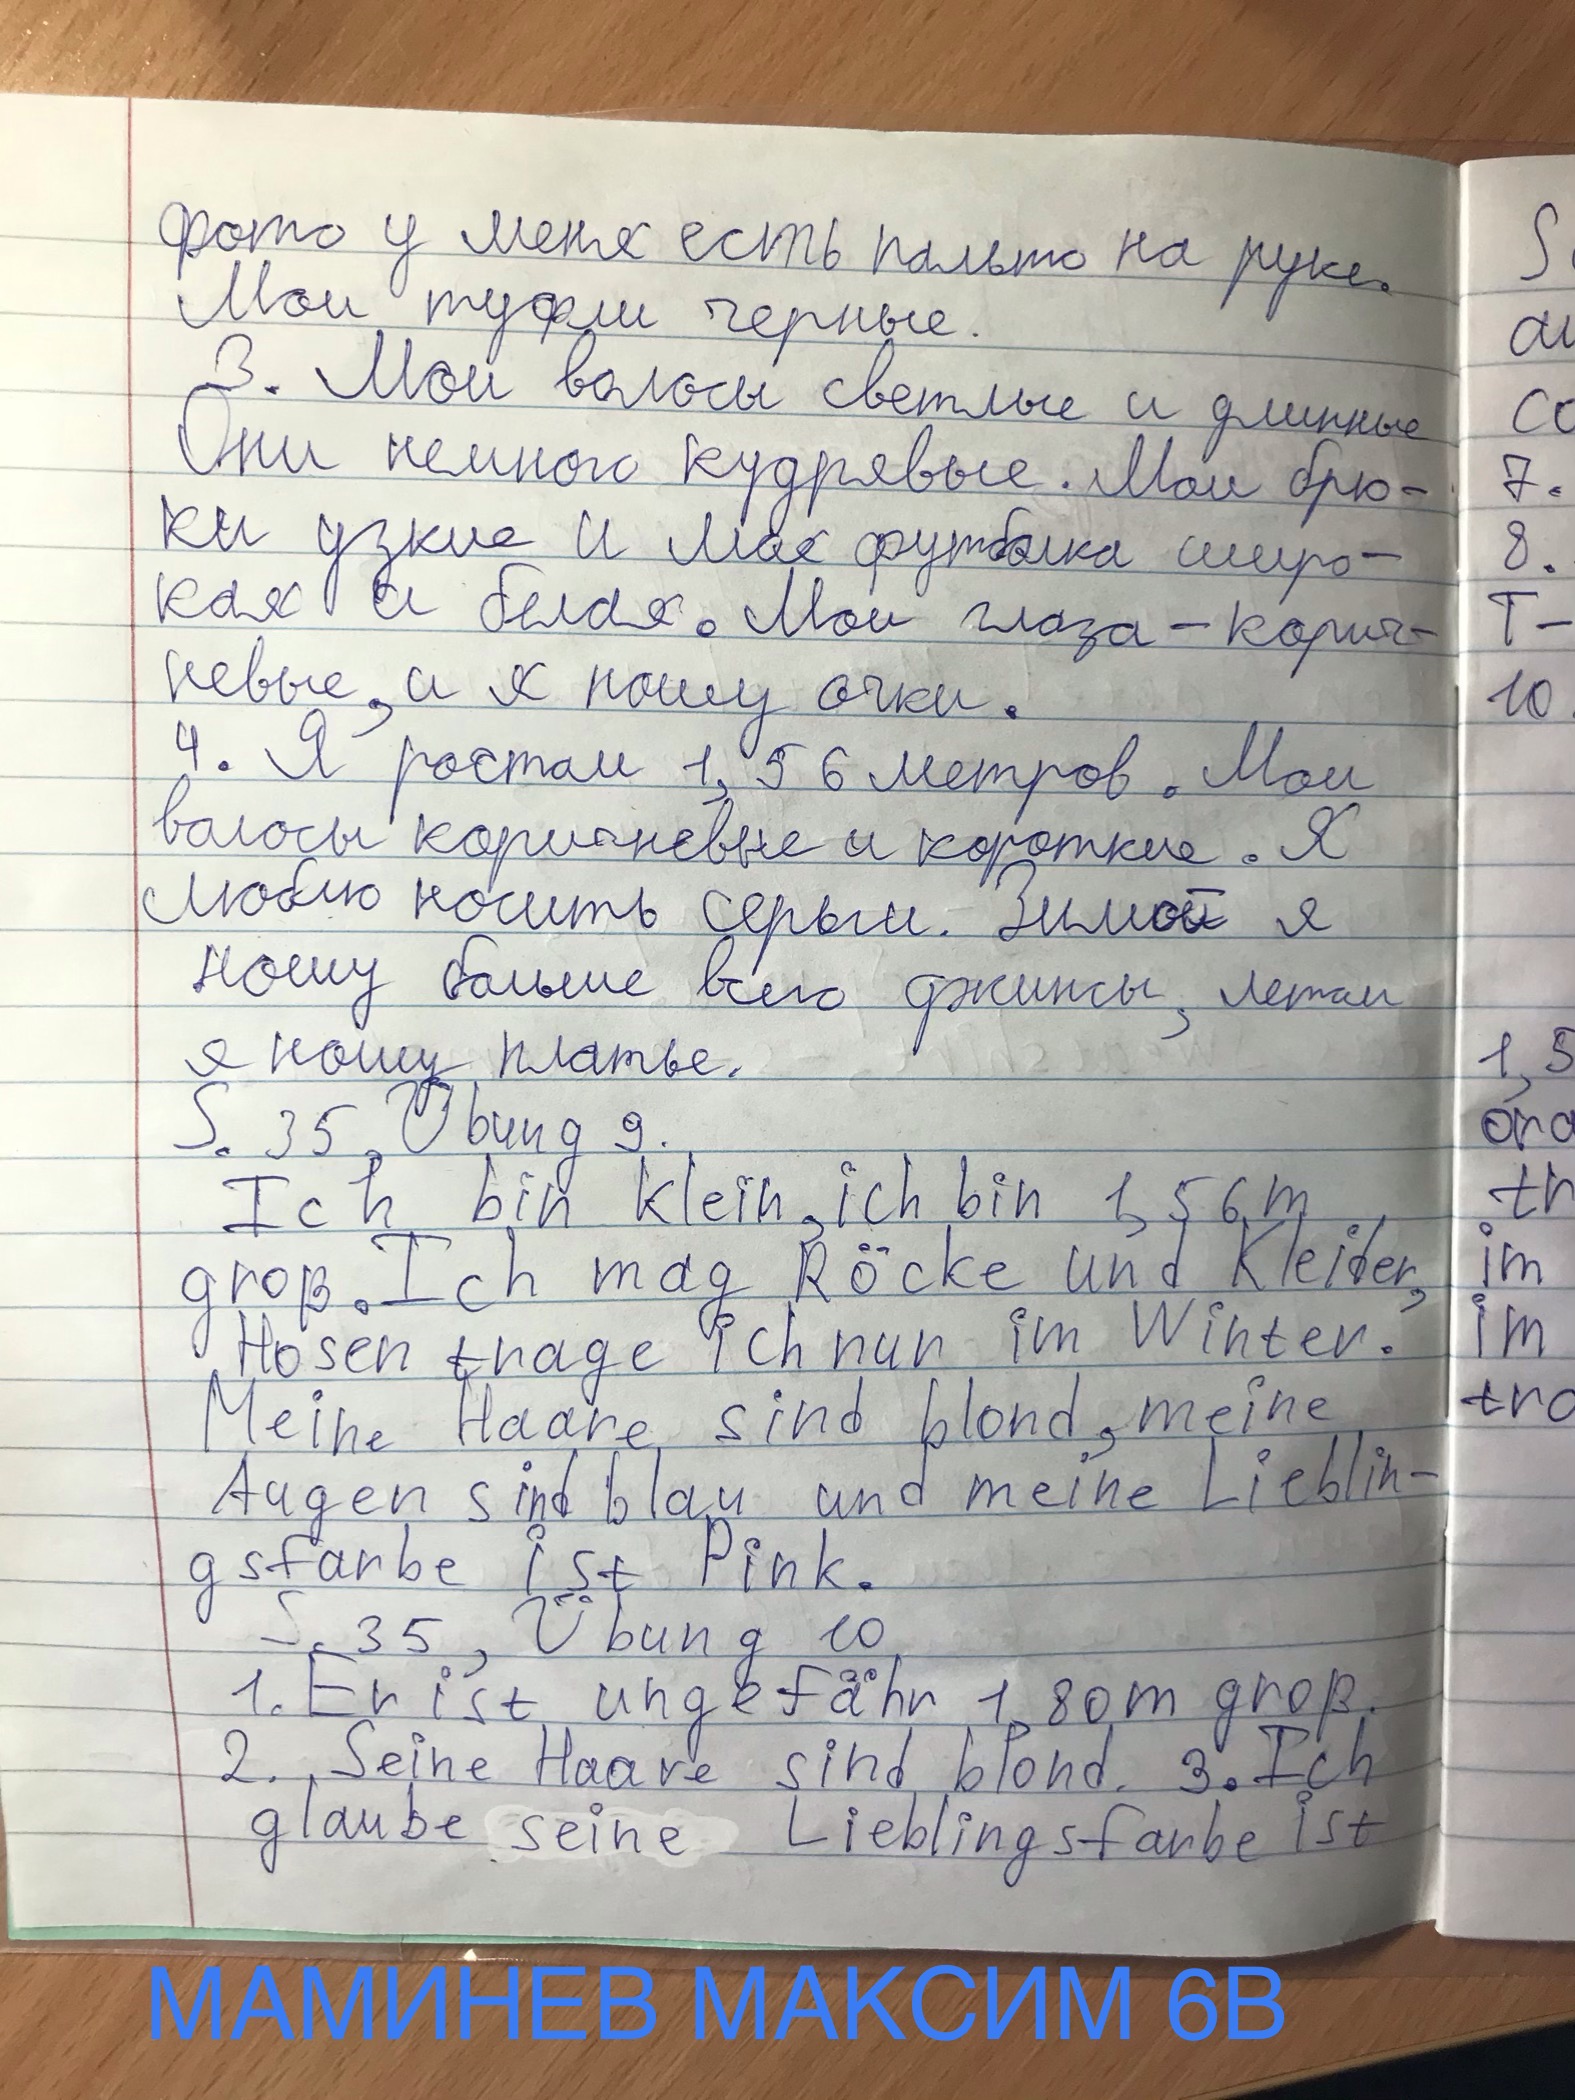 фото у меня есть пальто на руке.
Мои туфли черные.
3. Мои волосы светлые и длинные
Они немного кудрявые. Мои брю-
ки узкие и моя футболка широ-
кая и белая. Мои глаза - корич-
невые, и я ношу очки.
4. Я ростом 1,56 метров. Мои
волосы коричневые и короткие. Я
люблю носить серьги. Зимой я
ношу больше всего джинсы, летом
я ношу платье.
S. 35, Übung 9.
Ich bin klein, ich bin 1,56 m
groß. Ich mag Röcke und Kleider,
Hosen trage ich nur im Winter.
Meine Haare sind blond, meine
Augen sind blau und meine Lieblin-
gsfarbe ist Pink.
S. 35, Übung 10
1. Er ist ungefähr 1,80 m groß.
2. Seine Haare sind blond. 3. Ich
glaube seine Lieblingsfarbe ist
S
au
co
7.
8.
T-
10.
1,5
tr
im
im
tra
МАМИНЕВ МАКСИМ 6В